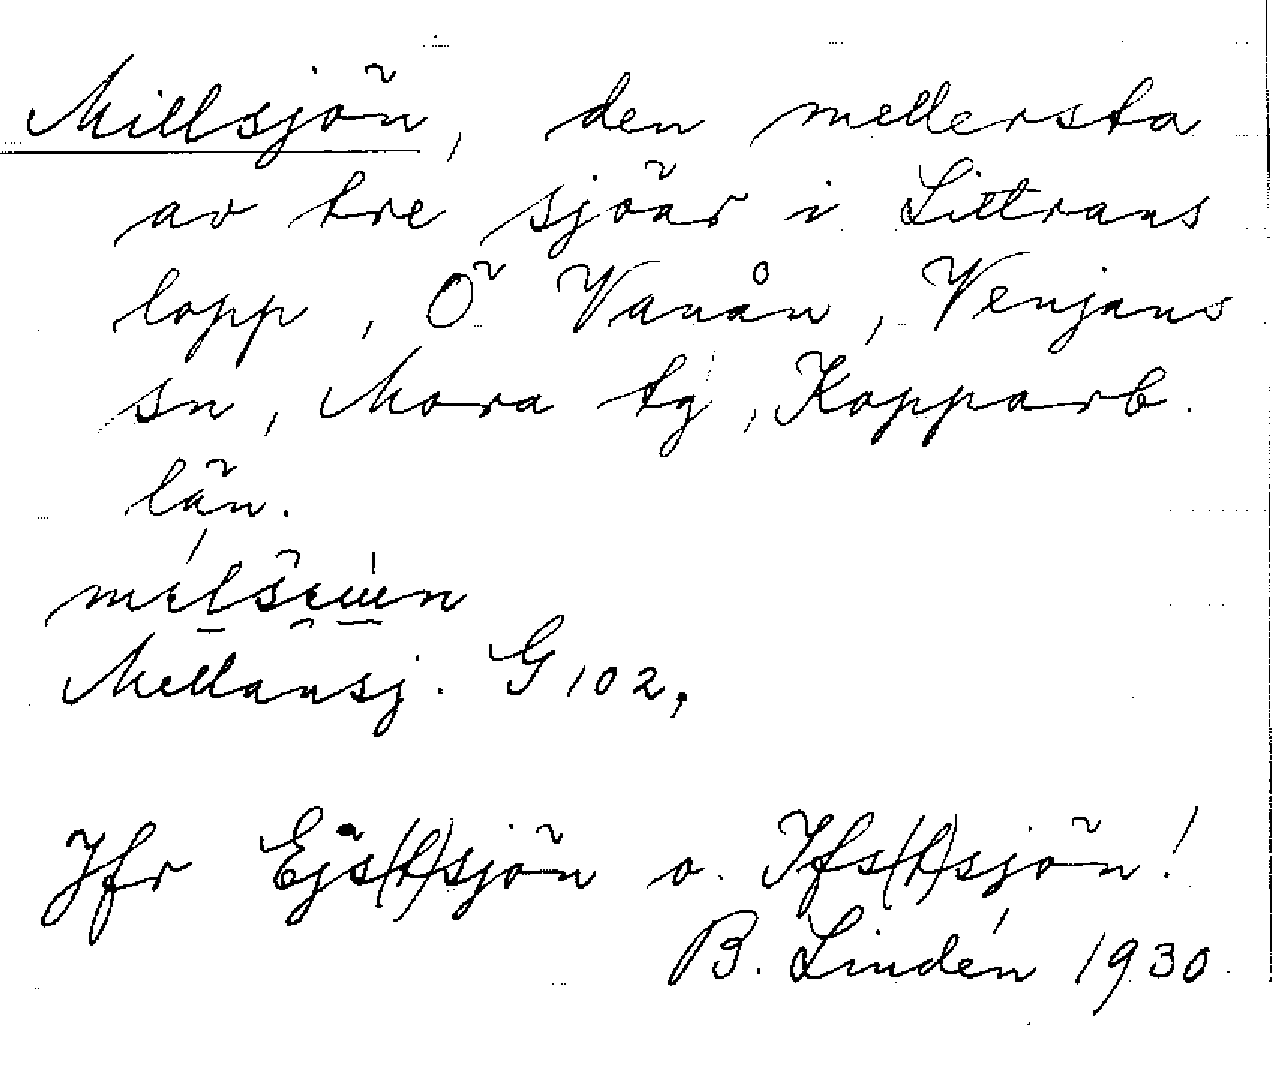 Millsjön, den mellersta
av tre sjöar i Littrans
lopp, Ö Vanån, Venjans
sn, Mora tg, Kopparb.
län.
Mellansj. G 102,
Jfr Ejs(t)sjön o. Ifs(t)sjön!
B. Lindén 1930